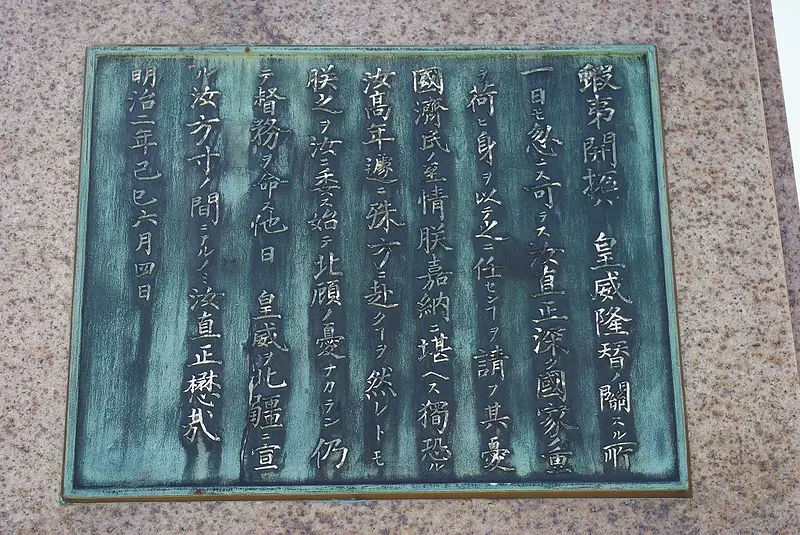 蝦夷開拓　皇威隆替關スル所
一日モ忽ニス可ラス汝直正深ク國家ノ重
ヲ荷ヒ身ヲ以テ之ニ任センヿヲ請フ其憂
國濟民ノ至情朕嘉納ニ堪ヘス獨恐ル
汝髙年遽ニ殊方ニ赴クヿヲ然レトモ
朕之ヲ汝ニ委ス始テ北顧ノ憂ナカラン仍
テ督務ヲ命ス他日　皇威ヲ北疆ニ宣
ル汝方寸ノ間ニアルノミ汝直正懋哉
明治二年己巳六月四日